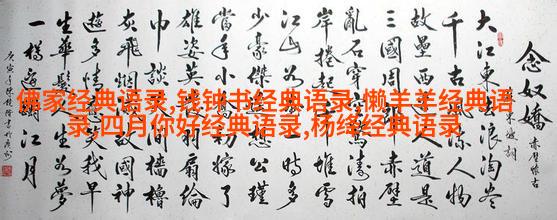 佛家经典语录,钱钟书经典语录,懒羊羊经典语
录,四月你好经典语录,杨绛经典语录
念奴娇
赤壁怀古
大江東去浪淘尽
千古流人物
故壘西人道是
三國周赤壁
亂石穿濤
岸捲起堆雪
江山如一時
少豪傑想公瑾
當年小初嫁了
雄姿英羽扇綸
巾談間檣櫓
灰飛烟國神
遊多情笑我早
生華人生如夢
一樽江月